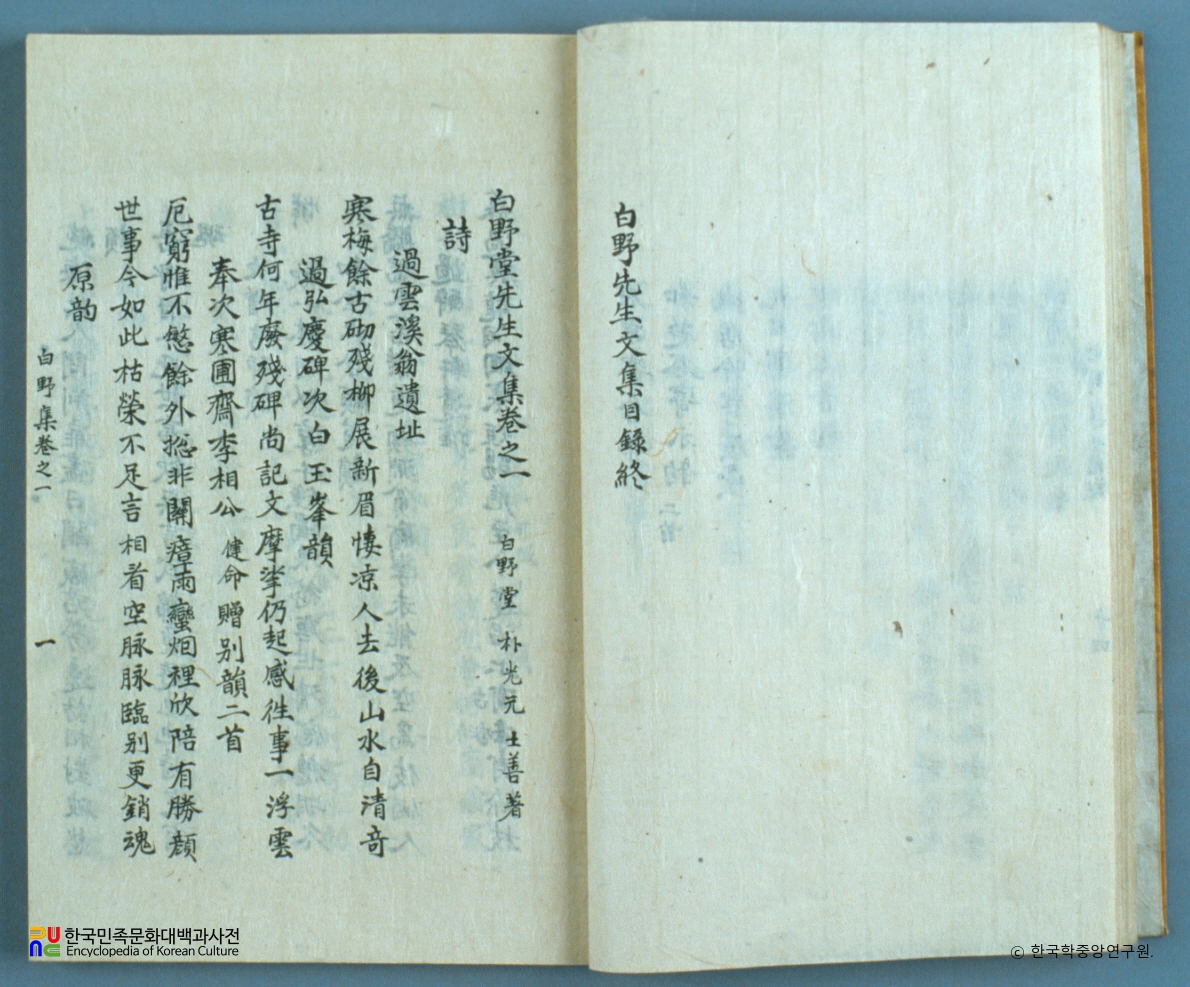 白野先生文集目錄終
白野堂先生文集卷之一 白野堂 朴光元 士善著
詩
過雲溪翁遺址
寒梅餘古砌殘柳展新眉悽凉人去後山水自清奇
過弘慶碑次白玉峯韻
古寺何年廢殘碑尚記文摩挲仍起感徃事一浮雲
奉次寒圃齋李相公 健命 贈别韻二首
厄窮惟不慗餘外摠非關瘴雨蠻烟裡欣陪有勝顔
世事今如此枯榮不足言相看空脉脉臨别更銷魂
原韵
白野集卷之一
一
한국민족문화대백과사전
Encyclopedia of Korean Culture
© 한국학중앙연구원.